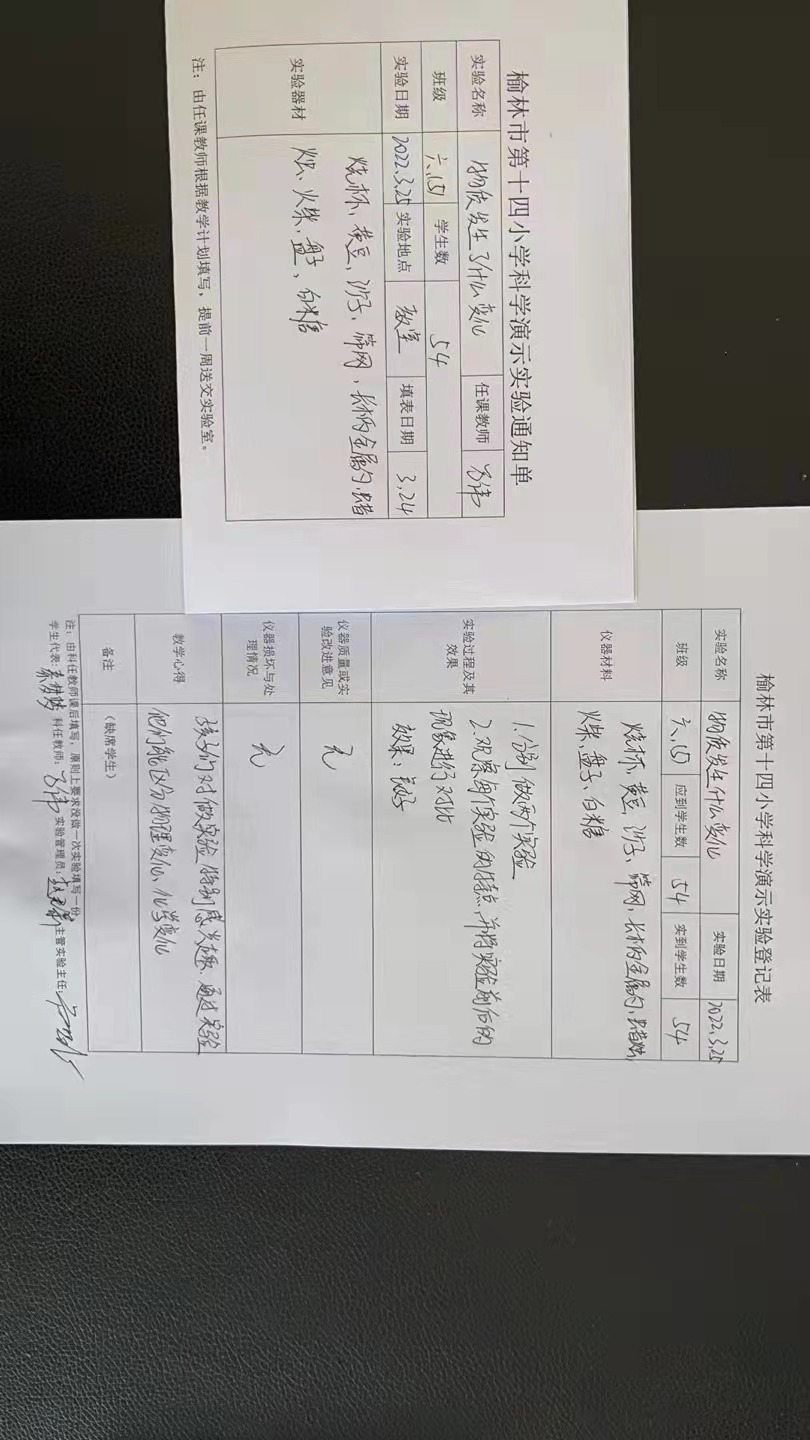 榆林市第十四小学科学演示实验通知单
实验名称 物质发生了什么变化 任课教师
班级 六.(5) 学生数 54
实验日期 2022.3.25 实验地点 教室 填表日期 3.24
实验器材 烧杯、黄豆、沙子、筛网、长柄金属勺、蜡
烛、火柴、盘子、白糖
注：由任课教师根据教学计划填写，提前一周送交实验室。
榆林市第十四小学科学演示实验登记表
实验名称 物质发生什么变化 实验日期 2022.3.25
班级 六.(5) 应到学生数 54 实到学生数 54
仪器材料 烧杯、黄豆、沙子、筛网、长柄金属勺、蜡烛、
火柴、盘子、白糖
实验过程及其效果 1.分别做两个实验
2.观察每个实验的特点，并将实验前后的
现象进行对比
效果：良好
仪器质量或实验改进意见 无
仪器损坏与处理情况 无
教学心得 孩子们对做实验特别感兴趣，通过实验
他们能区分物理变化、化学变化
备注 （缺席学生）
注：由科任教师课后填写，原则上要求没做一次实验填写一份
学生代表： 科任教师： 实验管理员： 主管实验主任：